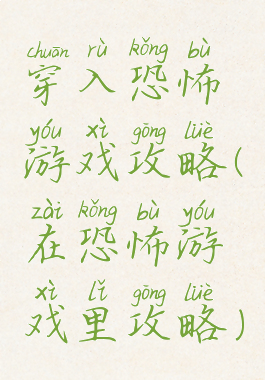 chuān rù kǒng bù
穿入恐怖
yóu xì gōng lüè
游戏攻略(
zài kǒng bù yóu
在恐怖游
xì lǐ gōng lüè
戏里攻略)